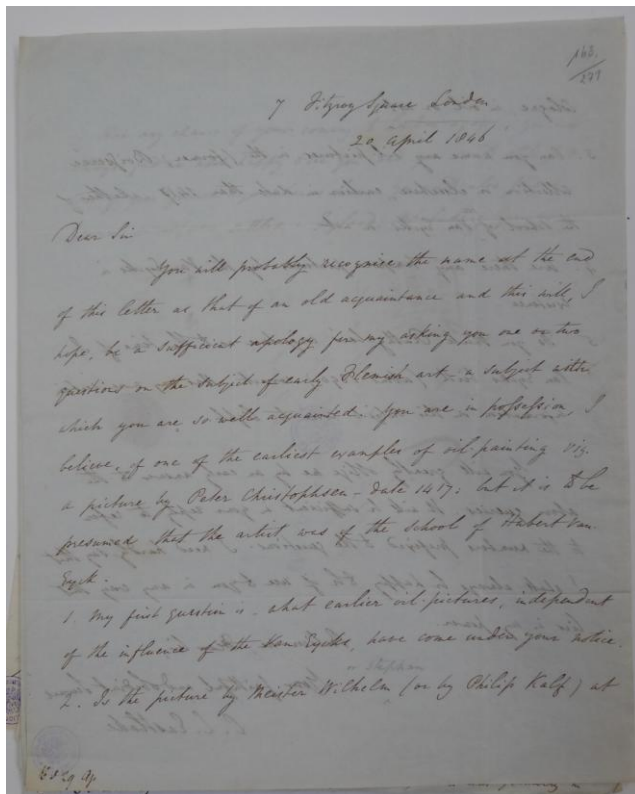 163
271
7 Fitzroy Square London
20 April 1846
Dear Sir
You will probably recognise the name at the end
of this letter as that of an old acquaintance and this will, I
hope, be a sufficient apology for my asking you one or two
questions on the subject of early Flemish art, a subject with
which you are so well acquainted. You are in possession, I
believe, of one of the earliest examples of oil-painting viz.
a picture by Peter Christophsen – date 1417: but it is to be
presumed that the artist was of the school of Hubert Van
Eyck.
1. My first question is, what earlier oil pictures, independent
of the influence of the Van Eycks, have come under your notice.
2. Is the picture by Meister Wilhelm (or by Philip Kalf) at